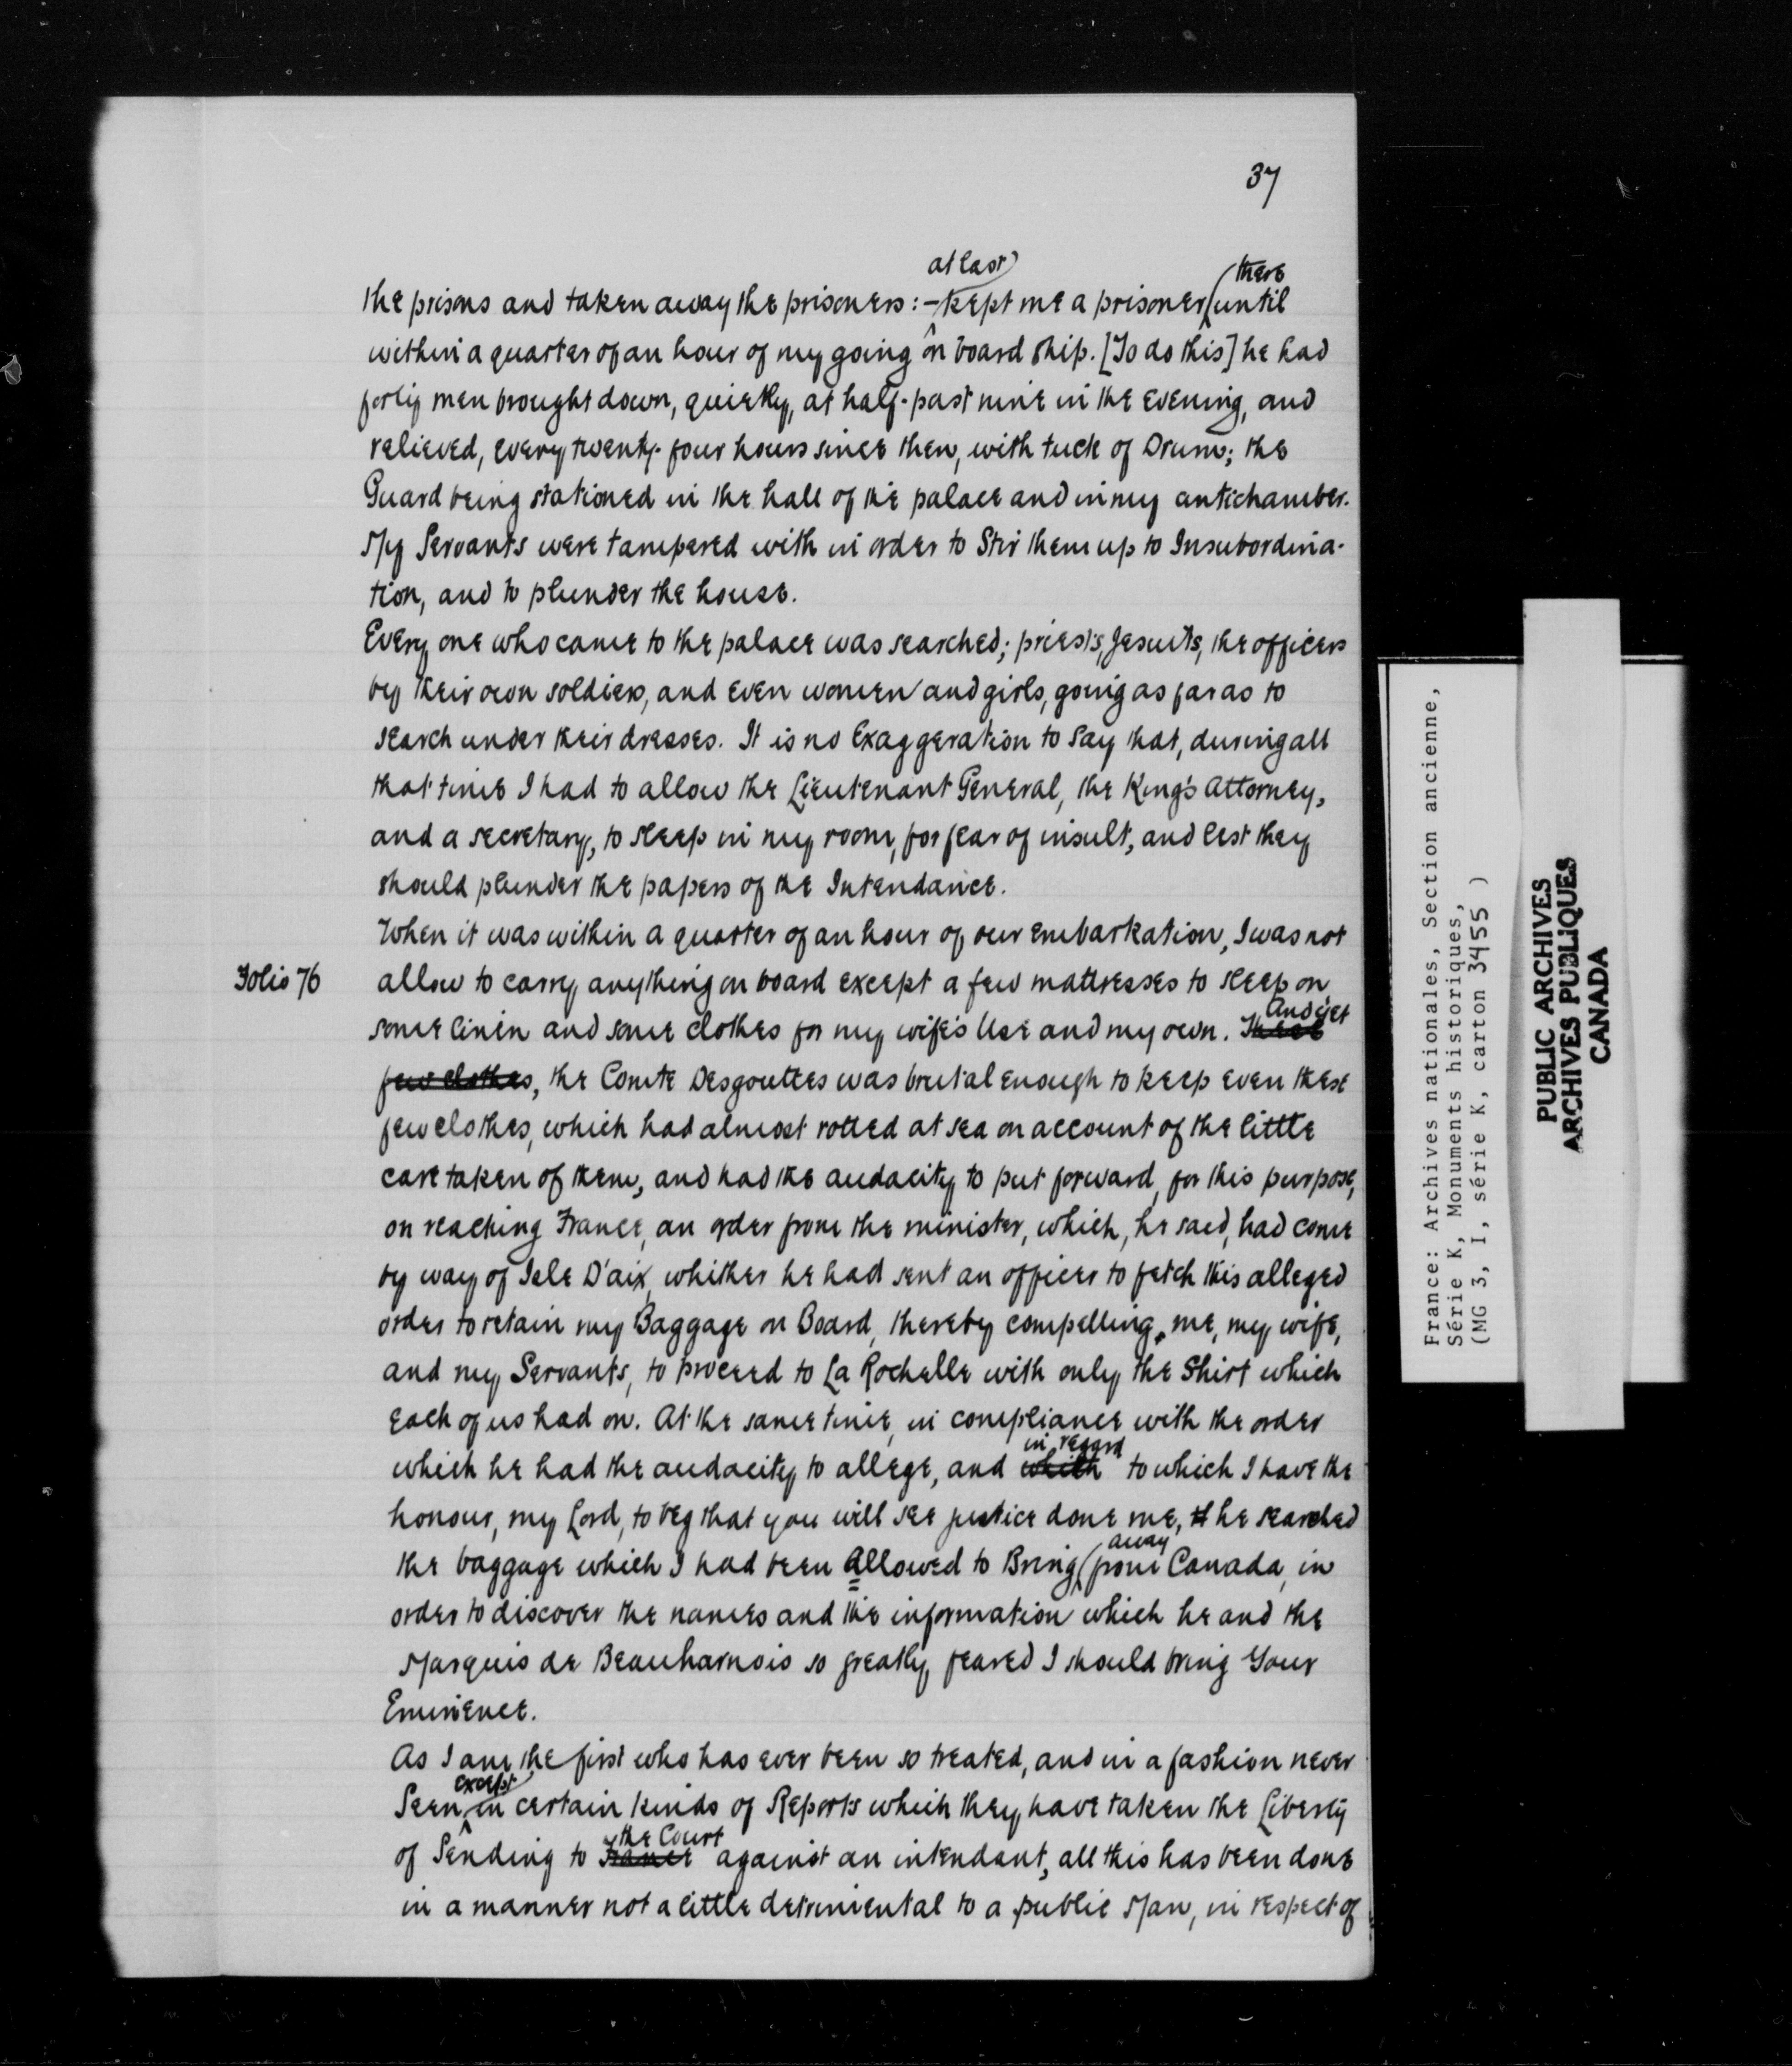 37
at last) (there
the prisons and taken away the prisoners: – kept me a prisoner (until
within a quarter of an hour of my going on board ship. [To do this] he had
forty men brought down, quietly, at half-past nine in the evening, and
relieved, every twenty-four hours since then, with tuck of Drum; the
Guard being stationed in the hall of the palace and in my antichamber.
My Servants were tampered with in order to Stir them up to Insubordina-
tion, and to plunder the house.
Every one who came to the palace was searched; priests, Jesuits, the officers
by their own soldiers, and even women and girls, going as far as to
search under their dresses. It is no Exaggeration to Say that, during all
that time I had to allow the Lieutenant General, the King's Attorney,
and a secretary, to sleep in my room, for fear of insult, and lest they
should plunder the papers of the Intendance.
When it was within a quarter of an hour of our embarkation, I was not
Folio 76 allow to carry anything on board except a few mattresses to sleep on
some linen and some clothes for my wife's Use and my own. These And yet
few clothes, the Comte Desgouttes was brutal enough to keep even these
few clothes, which had almost rotted at sea on account of the little
care taken of them, and had the audacity to put forward, for this purpose,
on reaching France, an order from the minister, which, he said, had come
by way of Isle D'aix, whither he had sent an officer to fetch this alleged
order to retain my Baggage on Board, thereby compelling me, my wife,
and my Servants, to proceed to La Rochelle with only the Shirt which
Each of us had on. At the same time, in compliance with the order
which he had the audacity to allege, and which in regard to which I have the
honour, my Lord, to beg that you will see justice done me, he searched
the baggage which I had been Allowed to Bring (away from Canada, in
order to discover the names and the information which he and the
Marquis de Beauharnois so greatly feared I should bring Your
Eminence.
As I am the first who has ever been so treated, and in a fashion never
Seen except in certain kinds of Reports which they have taken the Liberty
of Sending to France the Court against an intendant, all this has been done
in a manner not a little detrimental to a public Man, in respect of
France: Archives nationales, Section ancienne,
Série K, Monuments historiques,
(MG 3, I, série K, carton 3455 )
PUBLIC ARCHIVES
ARCHIVES PUBLIQUES
CANADA